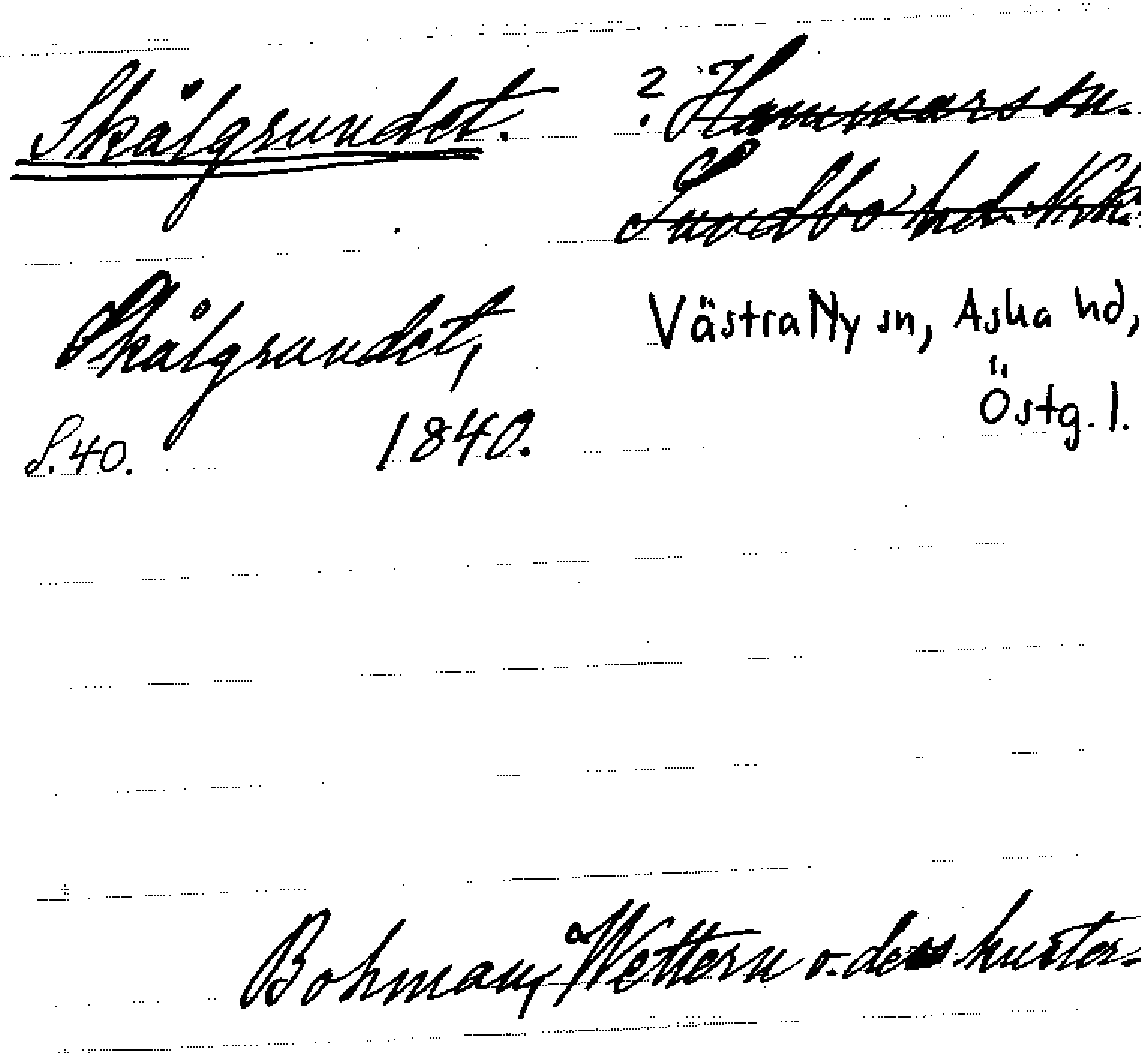 Skålgrundet. ? Hammars sn.
Sundbo hd. Nrk.
Skålgrundet, Västra Ny sn, Aska hd,
Östg. l.
S. 40. 1840.
Bohman, Wettern o. dess kuster.